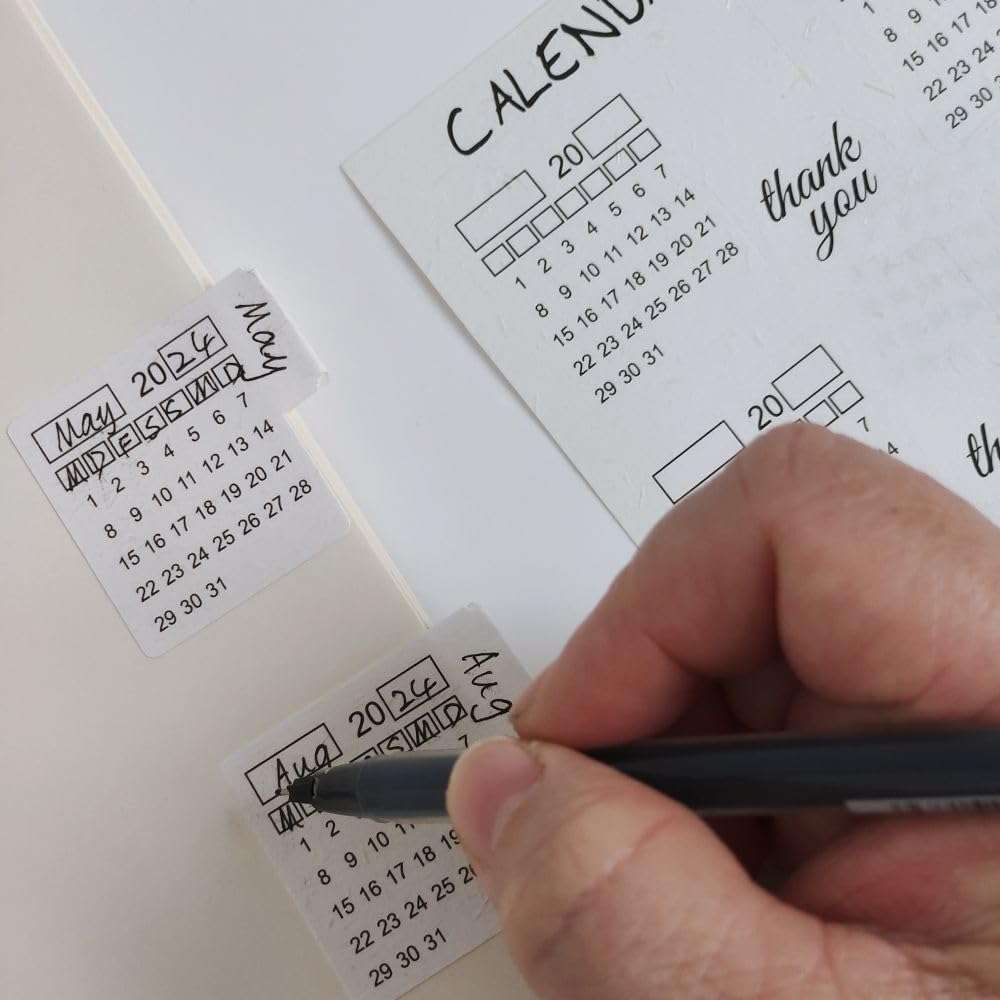 CALEND
20
1 2 3 4 5 6 7
8 9 10 11 12 13 14
15 16 17 18 19 20 21
22 23 24 25 26 27 28
29 30 31
thank
you
1
8 9
15 16 17 18
22 23 24
29 30
20
7
May
May 20 24
M D F S S M D
1 2 3 4 5 6 7
8 9 10 11 12 13 14
15 16 17 18 19 20 21
22 23 24 25 26 27 28
29 30 31
Aug
Aug 20 24
M S M D
1 2 7
8 9 10
15 16 17 18 19
22 23 24 25
29 30 31